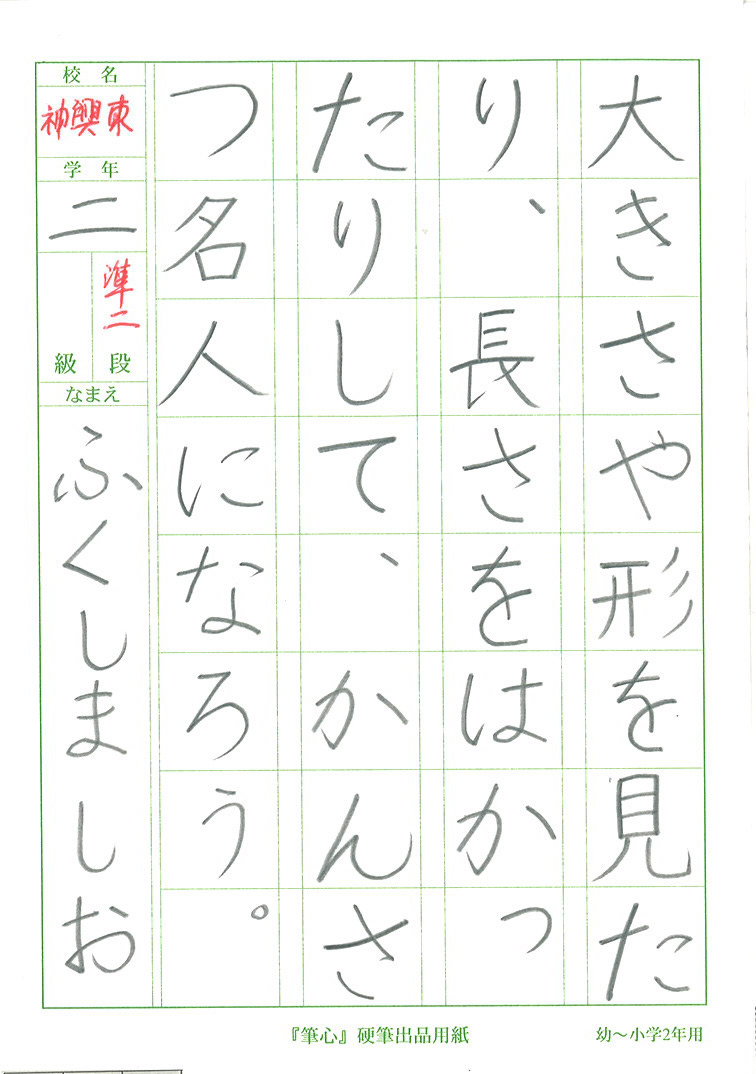 大きさや形を見た
り、長さをはかっ
たりして、かんさ
つ名人になろう。
校名
神興東
学年
二
準二
級段
なまえ
ふくしましお
『筆心』硬筆出品用紙
幼～小学2年用